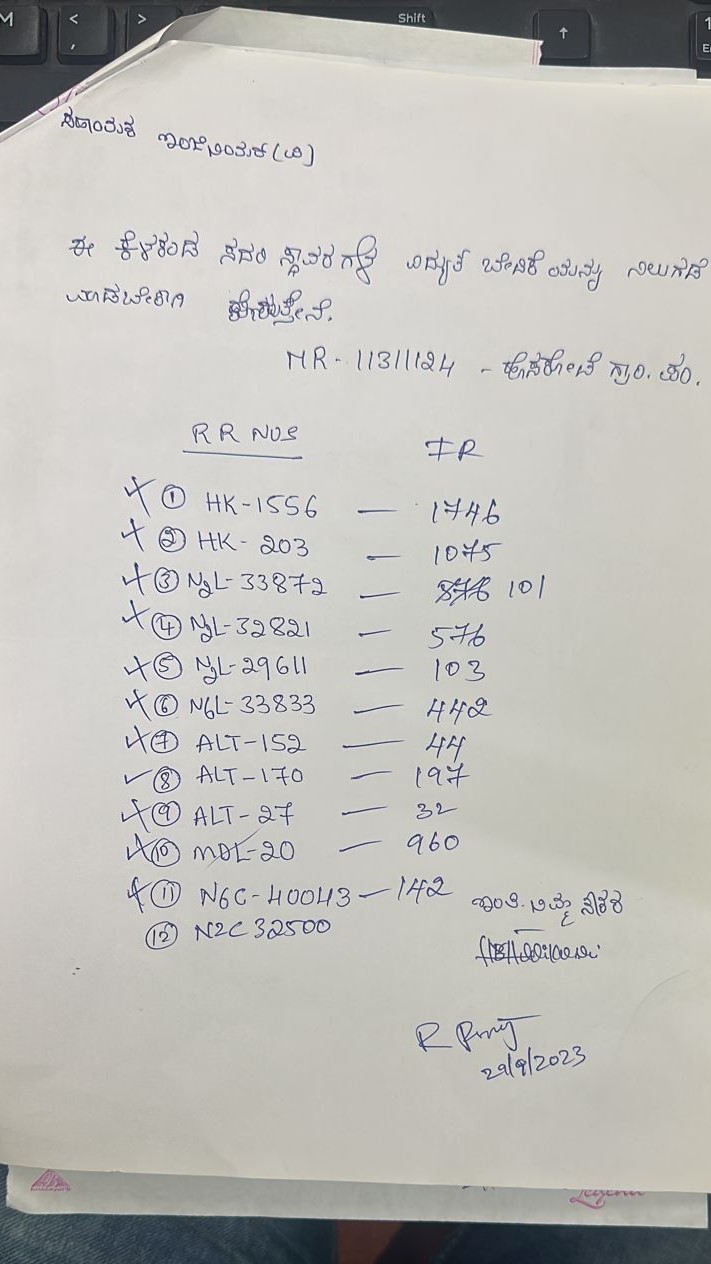 ಸಹಾಯಕ ಇಂಜಿನಿಯರ್ (ವಿ)
ಈ ಕೆಳಕಂಡ ಸದರಿ ಸ್ಥಾವರಗಳ ವಿದ್ಯುತ್ ಬೇಡಿಕೆಯನ್ನು ನಿಲುಗಡೆ
ಮಾಡಬೇಕಾಗಿ ಕೋರುತ್ತೇನೆ.
MR-11311124 - ಹೊಸಕೋಟೆ ಗ್ರಾಂ. ಪಂ.
RR NOS FR
① HK-1556 — 1746
② HK-203 — 1075
③ N2L-33872 — 101
④ N2L-32821 — 576
⑤ N2L-29611 — 103
⑥ N6L-33833 — 442
⑦ ALT-152 — 44
⑧ ALT-170 — 197
⑨ ALT-27 — 32
⑩ MDL-20 — 960
⑪ N6C-40043 — 142
ಇಂತಿ. ನಿಮ್ಮ
⑫ N2C 32500
29/9/2023